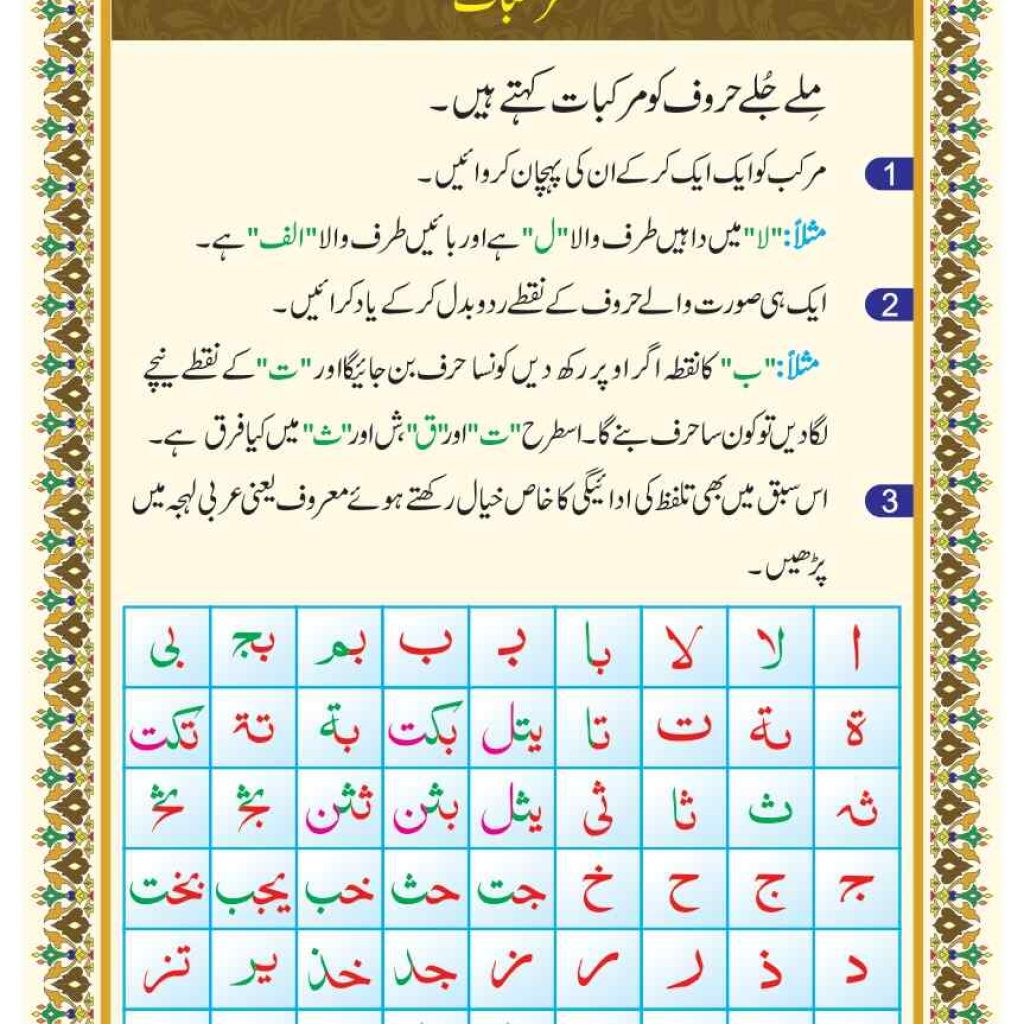 مِلے جُلے حروف کو مرکبات کہتے ہیں۔
1 مرکب کو ایک ایک کر کے ان کی پہچان کروائیں۔
مثلاً: "لا" میں داہیں طرف والا "ل" ہے اور بائیں طرف والا "الف" ہے۔
2 ایک ہی صورت والے حروف کے نقطے ردوبدل کر کے یاد کرائیں۔
مثلاً: "ب" کا نقطہ اگر اوپر رکھ دیں کونسا حرف بن جائیگا اور "ت" کے نقطے نیچے
لگا دیں تو کون سا حرف بنے گا۔ اسطرح "ت" اور "ق" ش اور "ث" میں کیا فرق ہے۔
3 اس سبق میں بھی تلفظ کی ادائیگی کا خاص خیال رکھتے ہوئے معروف یعنی عربی لہجہ میں
پڑھیں۔
ا لا لا با بـ ب بم بج بی
ة تة ت تا یتل بکت بة تة تکت
ثہ ث ثا ثی یثل بثن ثثن
جـ ج ح خ جت حث خب یجب بخت
د ذ ر ر ز جد خذ یر تز